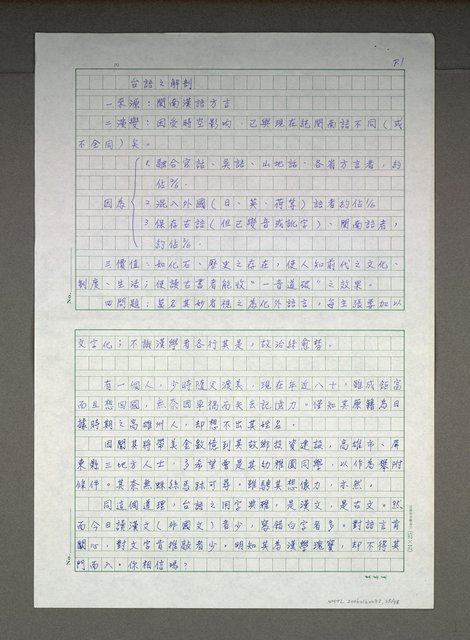 P.1
台語之解剖
一來源：閩南漢語方言
二演變：因受時空影响，已與現在純閩南語不同（或
不全同）矣。
1.融合官話、吳語、山地話、各省方言者，約
佔%。
因為 2.混入外國（日、英、荷等）語者約佔%
3.保存古語（但已變音或訛字）、閩南語者，
約佔%。
三價值：如化石、歷史之存在，使人知前代之文化、
制度、生活；使讀古書者能收“一音道破”之效果。
四問題：莫名其妙者視之為化外語言，每主張要加以
No.
文字化；不識漢學者各行其是，故治絲愈棼。
有一個人，少時隨父渡美，現在年近八十，雖成鉅富
而且想回國，無奈因車禍而失去記憶力。僅知其原籍為日
據時期之高雄州人，却想不出其姓名。
因聞其將帶美金數億到其故鄉投資建設，高雄市、屏
東縣三地方人士，多希望會是其幼稚園同學，以作為攀附
條件。其奈無蛛絲馬跡可尋，雖騁其想像力，亦然。
同這個道理，台語之用字典雅，是漢文，是古文。然
而今日讀漢文（外國文）者少，寫錯白字者多。對語言肯
關心，對文字肯推敲者少。明知其為漢學瓌寶，却不得其
門而入。你相信嗎？
No.
(25×20)